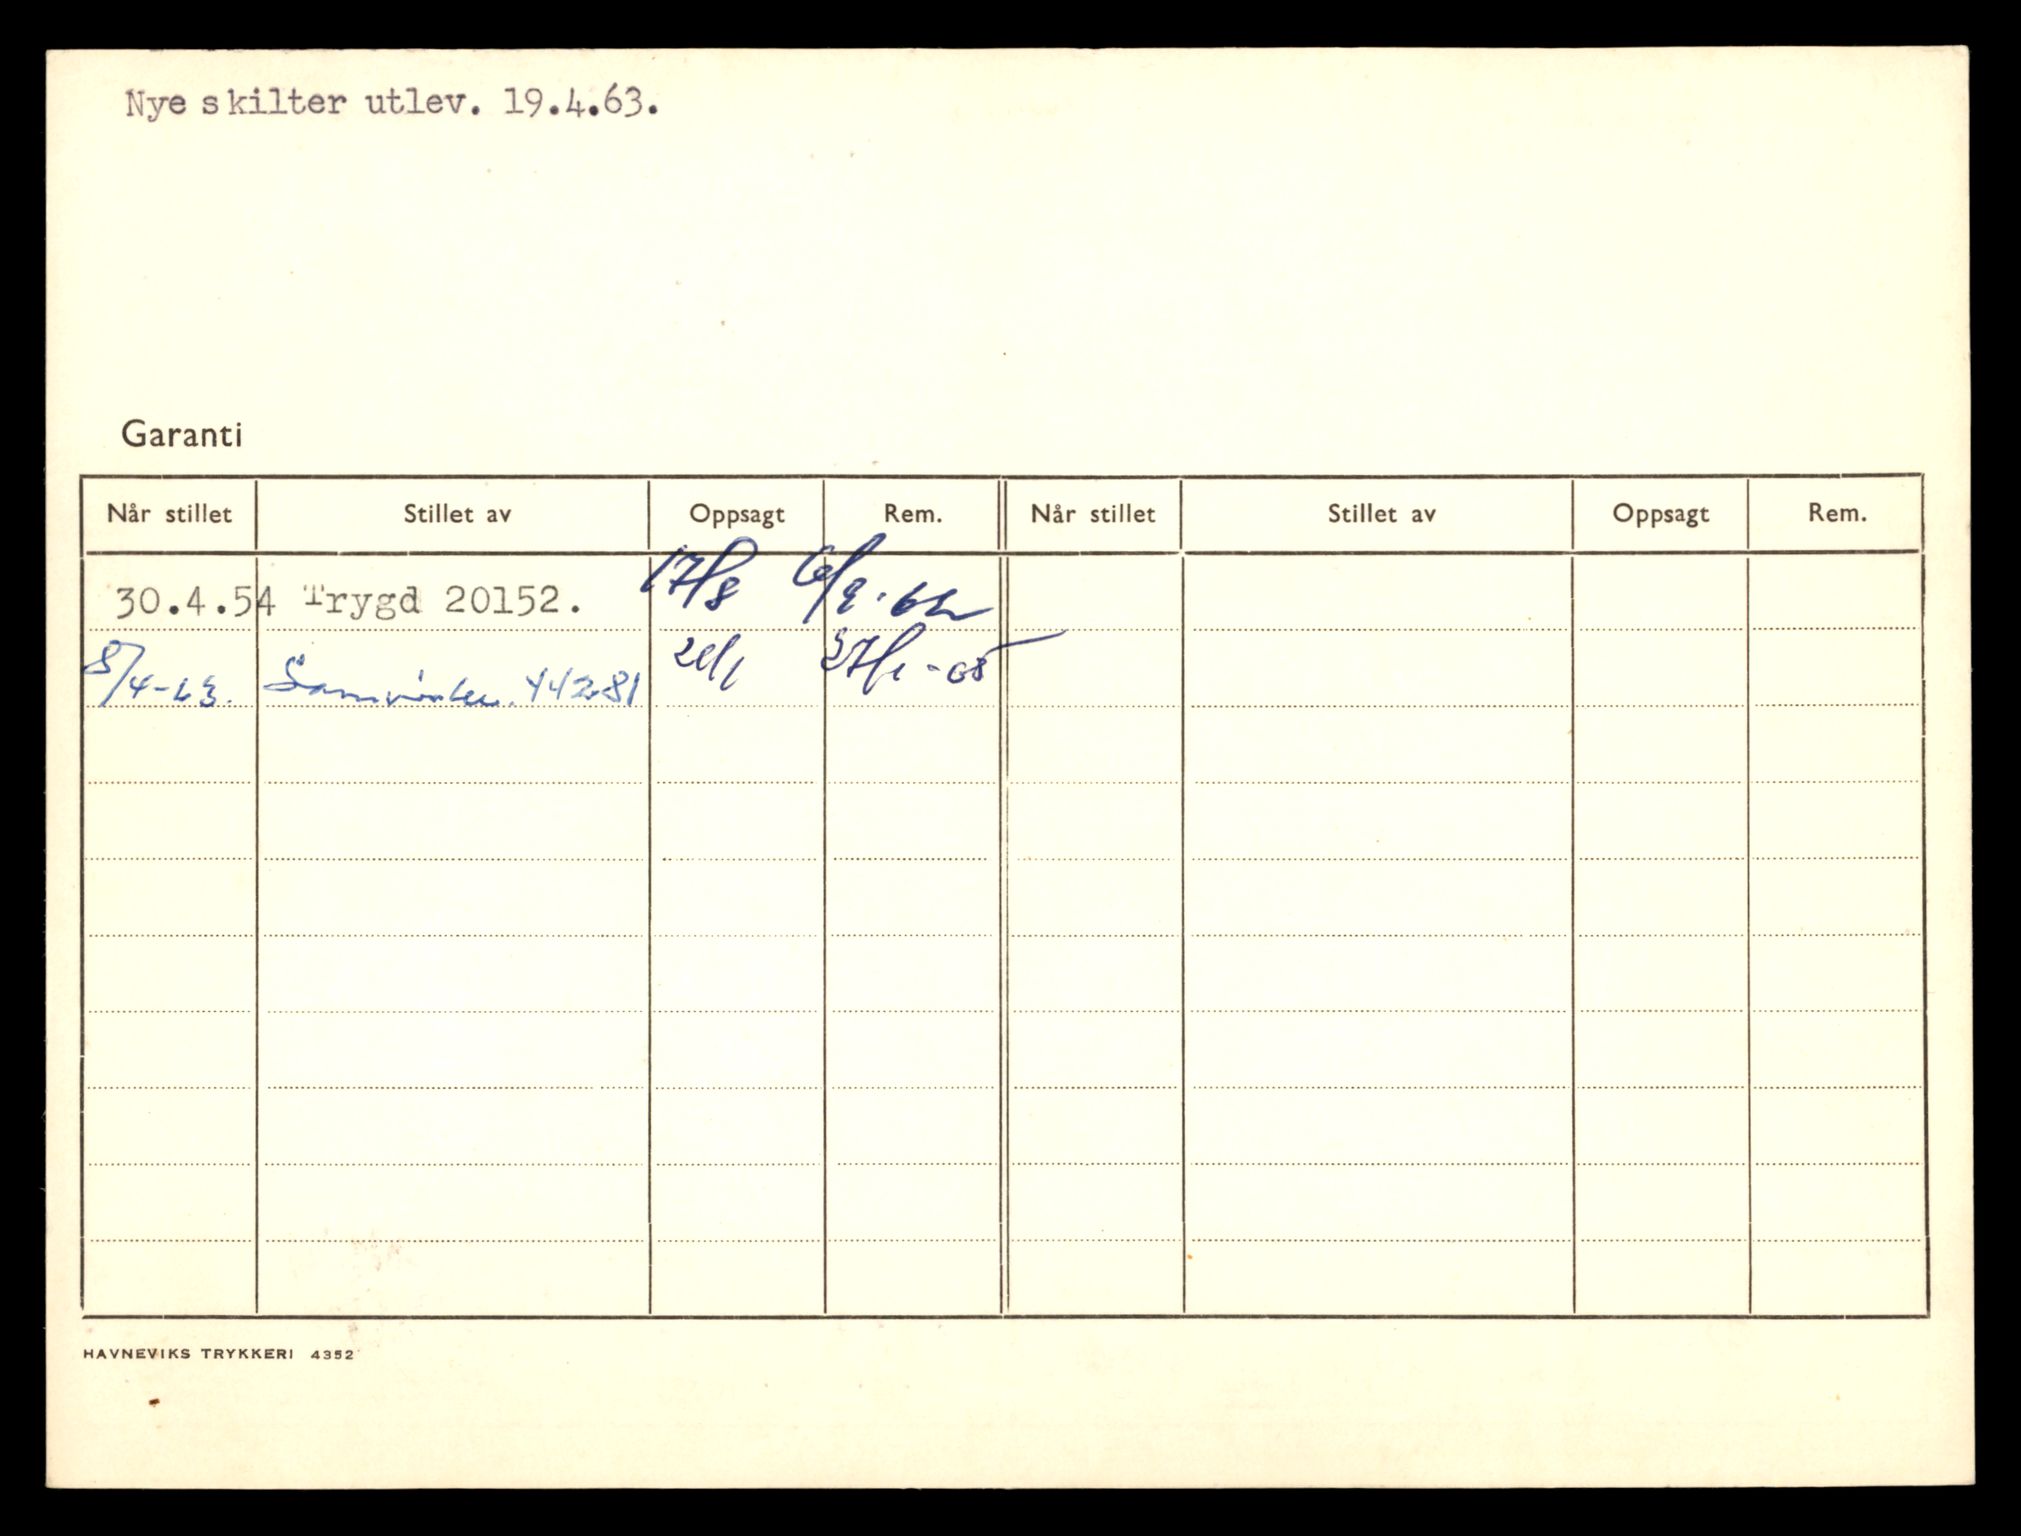 Nye skilter utlev. 19.4.63.
Garanti
Når stillet Stillet av Oppsagt Rem. Når stillet Stillet av Oppsagt Rem.
30.4.54 Trygd 20152. 17/8 6/9-62
8/4-63. Samvirke. 442281 27/1-65
HAVNEVIKS TRYKKERI 4352